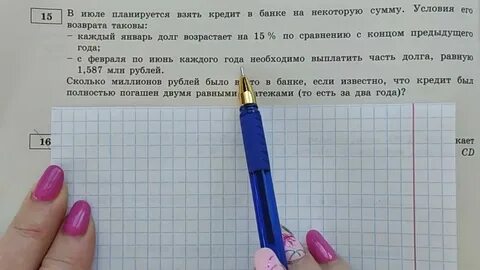 15 В июле планируется взять кредит в банке на некоторую сумму. Условия его
возврата таковы:
– каждый январь долг возрастает на 15 % по сравнению с концом предыдущего
года;
– с февраля по июнь каждого года необходимо выплатить часть долга, равную
1,587 млн рублей.
Сколько миллионов рублей было в банке, если известно, что кредит был
полностью погашен двумя равными (то есть за два года)?
16
CD